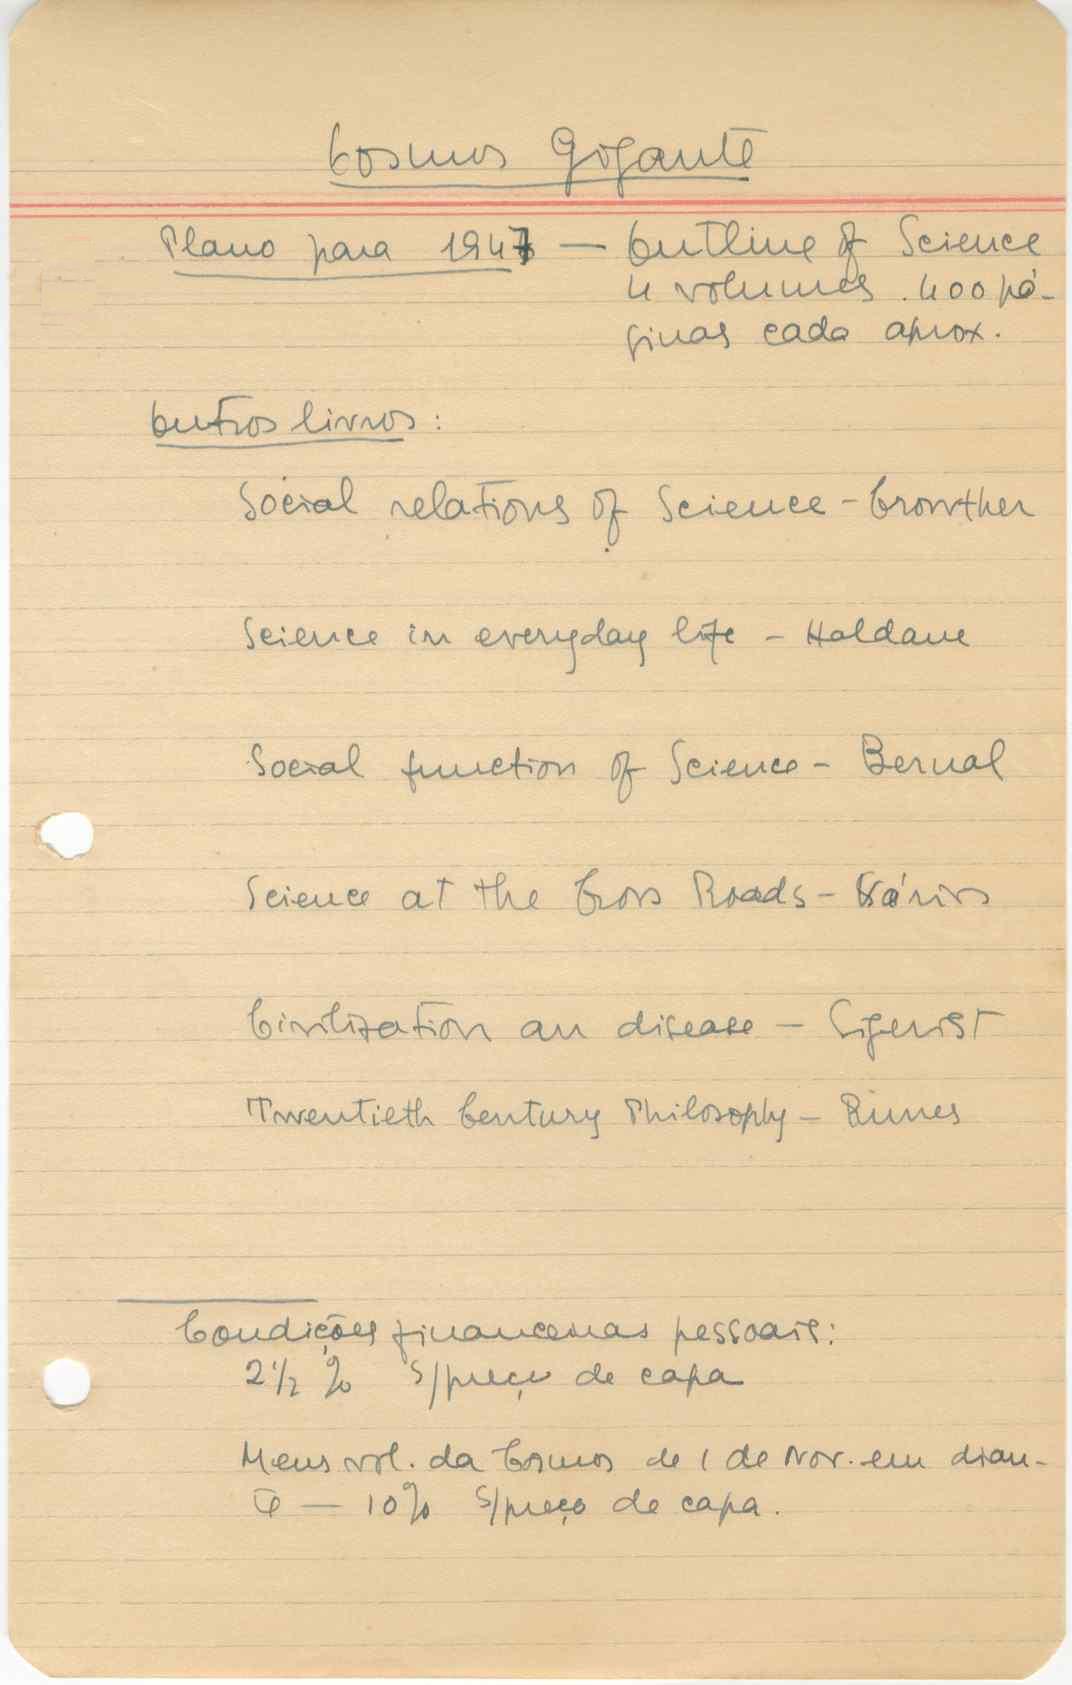 Cosmos Gigante
Plano para 1947 — Outline of Science
4 volumes. 400 pá-
ginas cada aprox.
Outros livros:
Social relations of Science - Crowther
Science in everyday life - Haldane
Social function of Science - Bernal
Science at the Cross Roads - Vários
Civilization an disease - Sigerist
Twentieth Century Philosophy - Runes
Condições financeiras pessoais:
2 1/2 % s/preço de capa
Meus vol. da Cosmos de 1 de Nov. em dian-
te — 10% s/preço de capa.